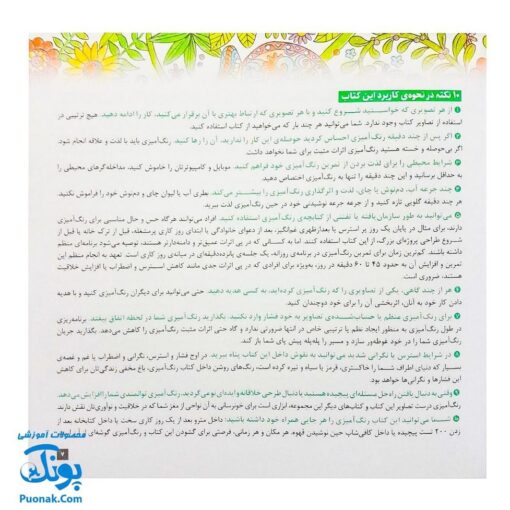 ۱۰ نکته در نحوه‌ی کاربرد این کتاب
۱ از هر تصویری که خواستید شروع کنید و با هر تصویری که ارتباط بهتری با آن برقرار می‌کنید، کار را ادامه دهید. هیچ ترتیبی در
استفاده از تصاویر کتاب وجود ندارد. شما می‌توانید هر چند بار که می‌خواهید از کتاب استفاده کنید.
۲ اگر پس از چند دقیقه رنگ‌آمیزی احساس کردید حوصله‌ی این کار را ندارید، آن را رها کنید. رنگ‌آمیزی باید با لذت و علاقه انجام شود.
اگر بی‌حوصله و خسته هستید رنگ‌آمیزی اثرات مثبت برای شما نخواهد داشت.
۳ شرایط محیطی را برای لذت بردن از تمرین رنگ‌آمیزی خود فراهم کنید. موبایل و کامپیوترتان را خاموش کنید، مداخله‌گرهای محیطی را
به حداقل برسانید و این چند دقیقه را تنها به رنگ‌آمیزی اختصاص دهید.
۴ چند جرعه آب، دم‌نوش یا چای، لذت و اثرگذاری رنگ‌آمیزی را بیشتر می‌کند. بطری آب یا لیوان چای و دم‌نوش خود را فراموش نکنید.
هر چند دقیقه گلویی تازه کنید و از جرعه جرعه نوشیدنی خود در حین رنگ‌آمیزی لذت ببرید.
۵ می‌توانید به طور سازمان‌یافته یا تفننی از کتابچه‌ی رنگ‌آمیزی استفاده کنید. افراد می‌توانند هرگاه حس و حال مناسبی برای رنگ‌آمیزی
دارند، برای مثال در پایان یک روز پر استرس یا بعدازظهری غم‌انگیز، بعد از دعوای خانوادگی یا ابتدای روز کاری پرمشغله، قبل از ترک خانه یا قبل از
شروع طراحی پروژه‌ای بزرگ، از این کتاب استفاده کنند. اما به کسانی که در پی اثرات عمیق‌تر و دامنه‌دارتر هستند، توصیه می‌شود برنامه‌ای منظم
داشته باشند. کم‌ترین زمان برای تمرین رنگ‌آمیزی در برنامه‌ی روزانه، یک جلسه‌ی پانزده‌دقیقه‌ای در میانه‌ی روز کاری است. تعهد به انجام منظم این
تمرین و افزایش آن به حدود ۴۵ تا ۶۰ دقیقه در روز، به‌ویژه برای افرادی که در پی اثرات جدی مانند کاهش استرس و اضطراب یا افزایش خلاقیت
هستند، ضروری است.
۶ هر از چند گاهی، یکی از تصاویری را که رنگ‌آمیزی کرده‌اید، به کسی هدیه دهید. حتی می‌توانید برای دیگران رنگ‌آمیزی کنید و با هدیه
دادن کار خود به آنان، اثربخشی آن را برای خود دوچندان کنید.
۷ برای رنگ‌آمیزی منظم یا حساب‌شده‌ی تصاویر به خود فشار وارد نکنید. بگذارید رنگ‌آمیزی شما در لحظه اتفاق بیفتد. برنامه‌ریزی
در طول رنگ‌آمیزی به منظور ایجاد نظم یا ترتیبی خاص در انتها ضرورتی ندارد و گاه حتی اثرات مثبت رنگ‌آمیزی را کاهش می‌دهد. بگذارید جریان
رنگ‌آمیزی شما را در خود غوطه‌ور سازد و مسیر را پله‌پله پیش پای شما باز کند.
۸ در شرایط استرس یا نگرانی شدید می‌توانید به نقوش داخل این کتاب پناه ببرید. در اوج فشار و استرس، نگرانی و اضطراب یا غم و غصه‌ی
بسیار که دنیای اطراف شما را خاکستری، قرمز یا سیاه و تیره کرده است، رنگ‌های روشن داخل کتاب رنگ‌آمیزی، باغ مخفی زندگی‌تان برای کاهش
این فشارها و نگرانی‌ها خواهد بود.
۹ وقتی به دنبال یافتن راه‌حل مسئله‌ای پیچیده هستید یا دنبال طرحی خلاقانه و ایده‌ای نو می‌گردید، رنگ‌آمیزی توانمندی شما را افزایش می‌دهد.
رنگ‌آمیزی درست تصاویر این کتاب و کتاب‌های دیگر این مجموعه، ابزاری است برای خون‌رسانی به آن نواحی از مغز شما که در خلاقیت و نوآوری‌تان نقش دارند.
۱۰ شما می‌توانید این کتاب رنگ‌آمیزی را هر جایی همراه خود داشته باشید: داخل مترو بعد از یک روز کاری سخت یا داخل کتابخانه بعد از
زدن ۲۰۰ تست پیچیده یا داخل کافی‌شاپ حین نوشیدن قهوه. هر مکان و هر زمانی، فرصتی برای گشودن این کتاب و رنگ‌آمیزی گوشه‌ای از آن است.
محصولات آموزشی
پونک
Puonak.Com